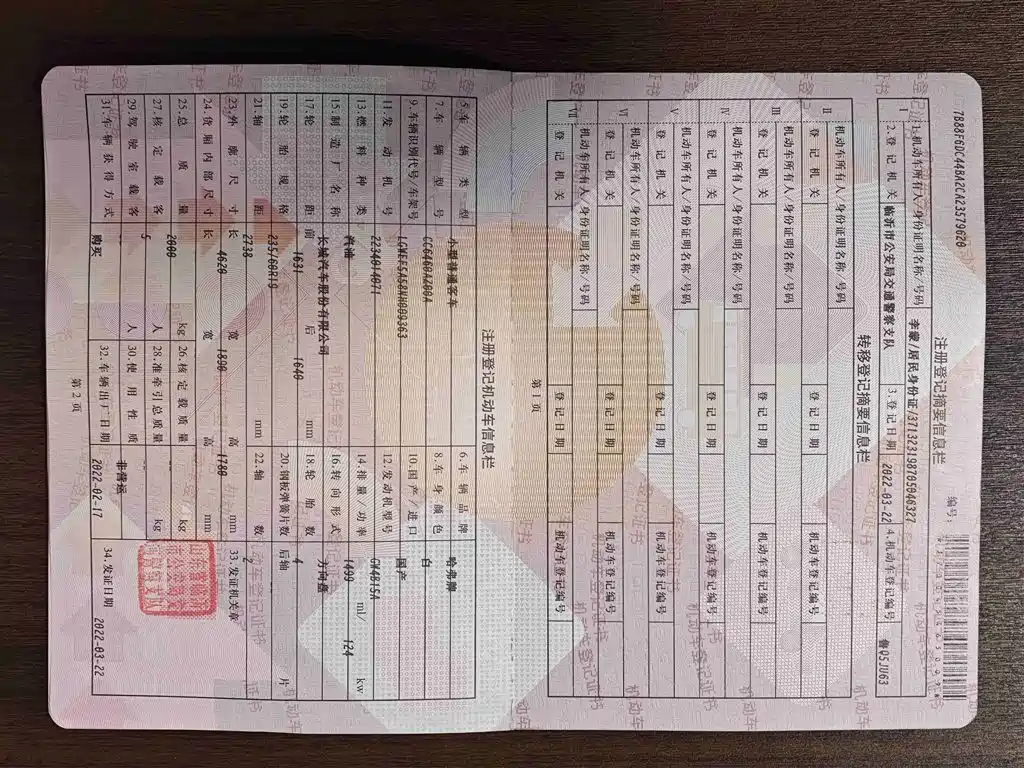 注册登记摘要信息栏
编号:
7B88F6DC448A2CA23579620
I 1.机动车所有人/身份证明名称/号码 李皦/居民身份证/371323198705046327
2.登记机关 临沂市公安局交通警察支队 3.登记日期 2022-03-22 4.机动车登记编号 鲁Q5JU63
转移登记摘要信息栏
II 机动车所有人/身份证明名称/号码
登记机关 登记日期 机动车登记编号
III 机动车所有人/身份证明名称/号码
登记机关 登记日期 机动车登记编号
IV 机动车所有人/身份证明名称/号码
登记机关 登记日期 机动车登记编号
V 机动车所有人/身份证明名称/号码
登记机关 登记日期 机动车登记编号
VI 机动车所有人/身份证明名称/号码
登记机关 登记日期 机动车登记编号
VII 机动车所有人/身份证明名称/号码
登记机关 登记日期 机动车登记编号
第1页
注册登记机动车信息栏
5.车辆类型 小型普通客车 6.车辆品牌 哈弗牌
7.车辆型号 CC6460AJ20A 8.车身颜色 白
9.车辆识别代号/车架号 LGWEF5A58NH009363 10.国产/进口 国产
11.发动机号 2234014071 12.发动机型号 GW4B15A
13.燃料种类 汽油 14.排量/功率 1499 ml/ 124 kw
15.制造厂名称 长城汽车股份有限公司 16.转向形式 方向盘
17.轮距 前 1631 后 1640 mm 18.轮胎数 4
19.轮胎规格 235/60R19 20.钢板弹簧片数 后轴 片
21.轴距 2738 mm 22.轴数 2
23.外廓尺寸 长 4620 宽 1890 高 1780 mm 33.发证机关章
24.货厢内部尺寸 长 宽 高 mm
25.总质量 2000 kg 26.核定载质量 kg
27.核定载客 5 人 28.准牵引总质量 kg
29.驾驶室载客 人 30.使用性质 非营运
31.车辆获得方式 购买 32.车辆出厂日期 2022-02-17 34.发证日期 2022-03-22
第2页